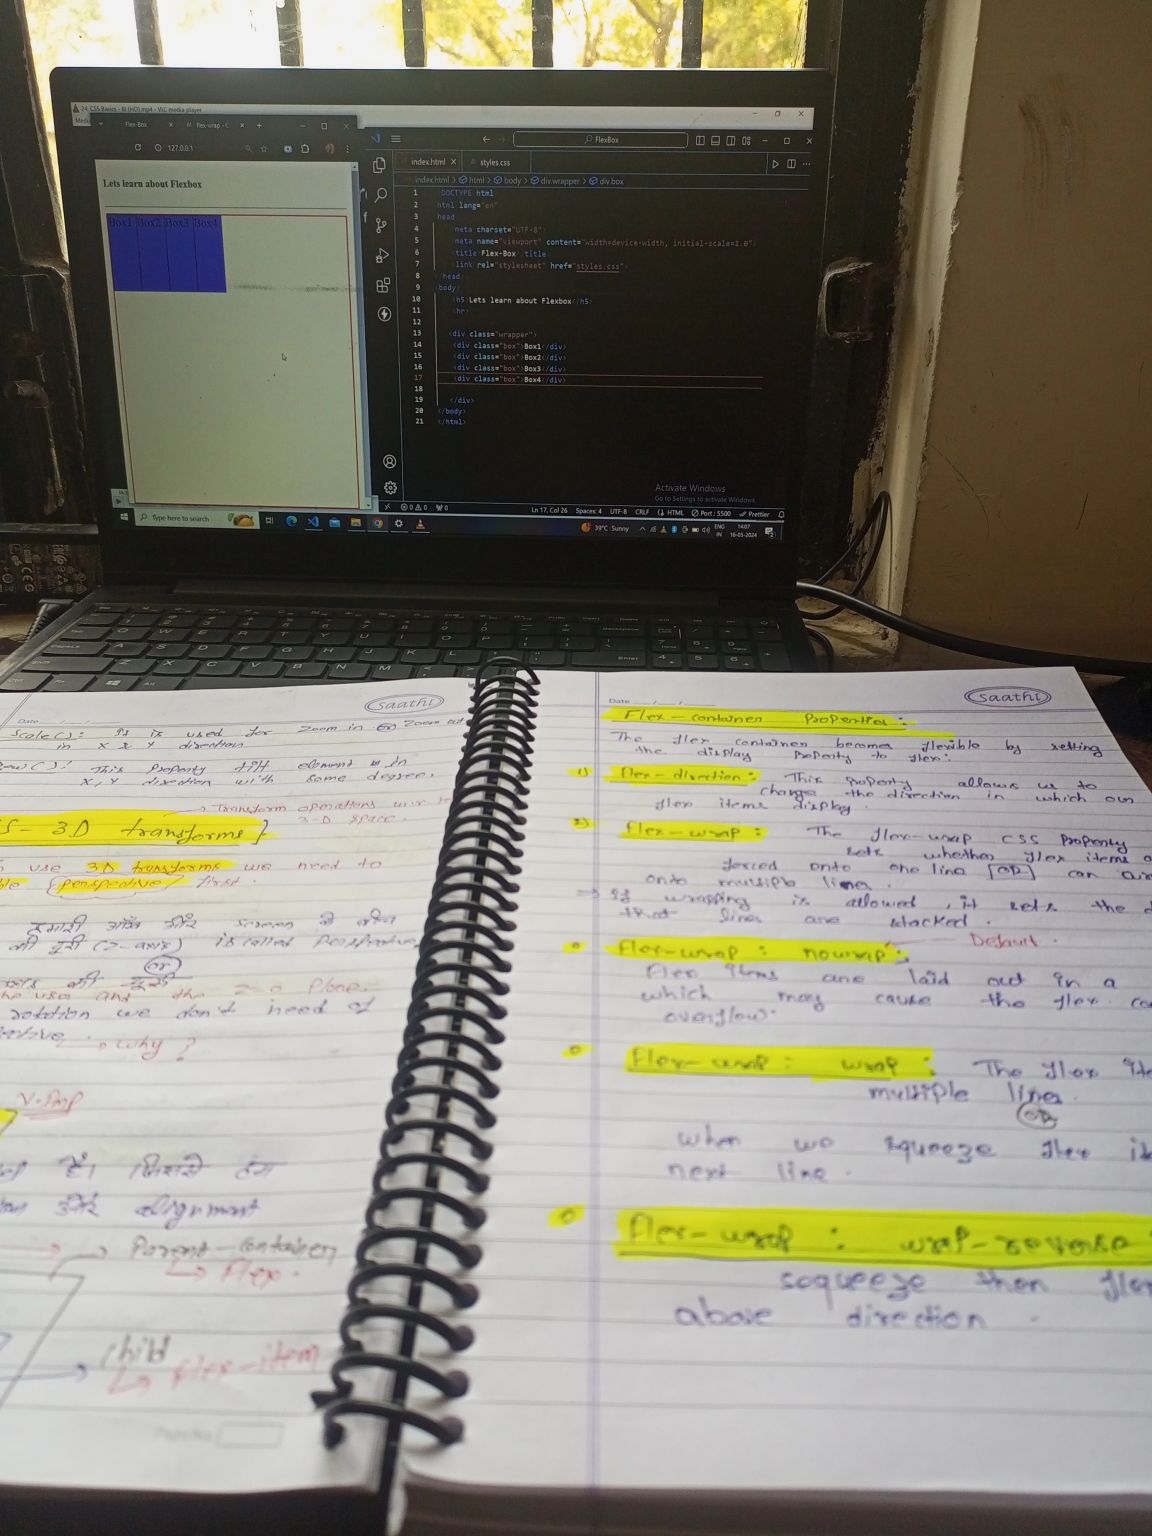 24. CSS Basics - III (HD).mp4 - VLC media player
Flex-Box
flex-wrap - C
127.0.0.1
Lets learn about Flexbox
Box1 Box2 Box3 Box4
FlexBox
index.html
styles.css
index.html > html > body > div.wrapper > div.box
1 <!DOCTYPE html>
2 <html lang="en">
3 <head>
4 <meta charset="UTF-8">
5 <meta name="viewport" content="width=device-width, initial-scale=1.0">
6 <title>Flex-Box</title>
7 <link rel="stylesheet" href="styles.css">
8 </head>
9 <body>
10 <h5>Lets learn about Flexbox</h5>
11 <hr>
12
13 <div class="wrapper">
14 <div class="box">Box1</div>
15 <div class="box">Box2</div>
16 <div class="box">Box3</div>
17 <div class="box">Box4</div>
18
19 </div>
20 </body>
21 </html>
Activate Windows
Go to Settings to activate Windows.
Ln 17, Col 26 Spaces: 4 UTF-8 CRLF HTML Port : 5500 Prettier
Type here to search
39°C Sunny
ENG
IN
14:07
16-05-2024
saathi
Date
Scale(): It is used for zoom in or zoom out
in X & Y direction
This property tilt element in
X, Y direction with some degree.
Transform operations
3-D space.
3D transforms
use 3D transforms we need to
perspective first.
हमारी आँख और screen के बीच
की दूरी (Z-axis) is called perspective
or
the user and the Z=0 plane.
rotation we don't need of
why ?
V.Imp
है। जिससे हम
और alignment
Parent-container
Flex.
child
flex-item
saathi
Date
Flex-container Properties:
The flex container becomes flexible by setting
the display property to flex:
1) flex-direction: This property allows us to
change the direction in which our
flex items display.
2) flex-wrap: The flex-wrap CSS property
sets whether flex items
forced onto one line [OR] can
onto multiple lines.
If wrapping is allowed, it sets the
that lines are stacked.
Flex-wrap: nowrap; Default.
Flex items are laid out in a
which may cause the flex
overflow.
Flex-wrap: wrap; The flex
multiple lines.
OR
when we squeeze flex
next line.
Flex-wrap: wrap-reverse
squeeze then flex
above direction.